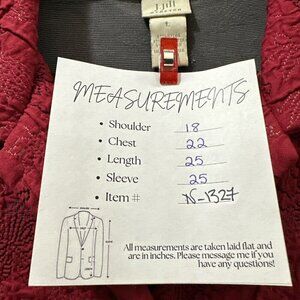 J.Jill
STRETCH
L
MEASUREMENTS
• Shoulder 18
• Chest 22
• Length 25
• Sleeve 25
• Item # N-1327
All measurements are taken laid flat and are
in inches. Please message me if you
have any questions!